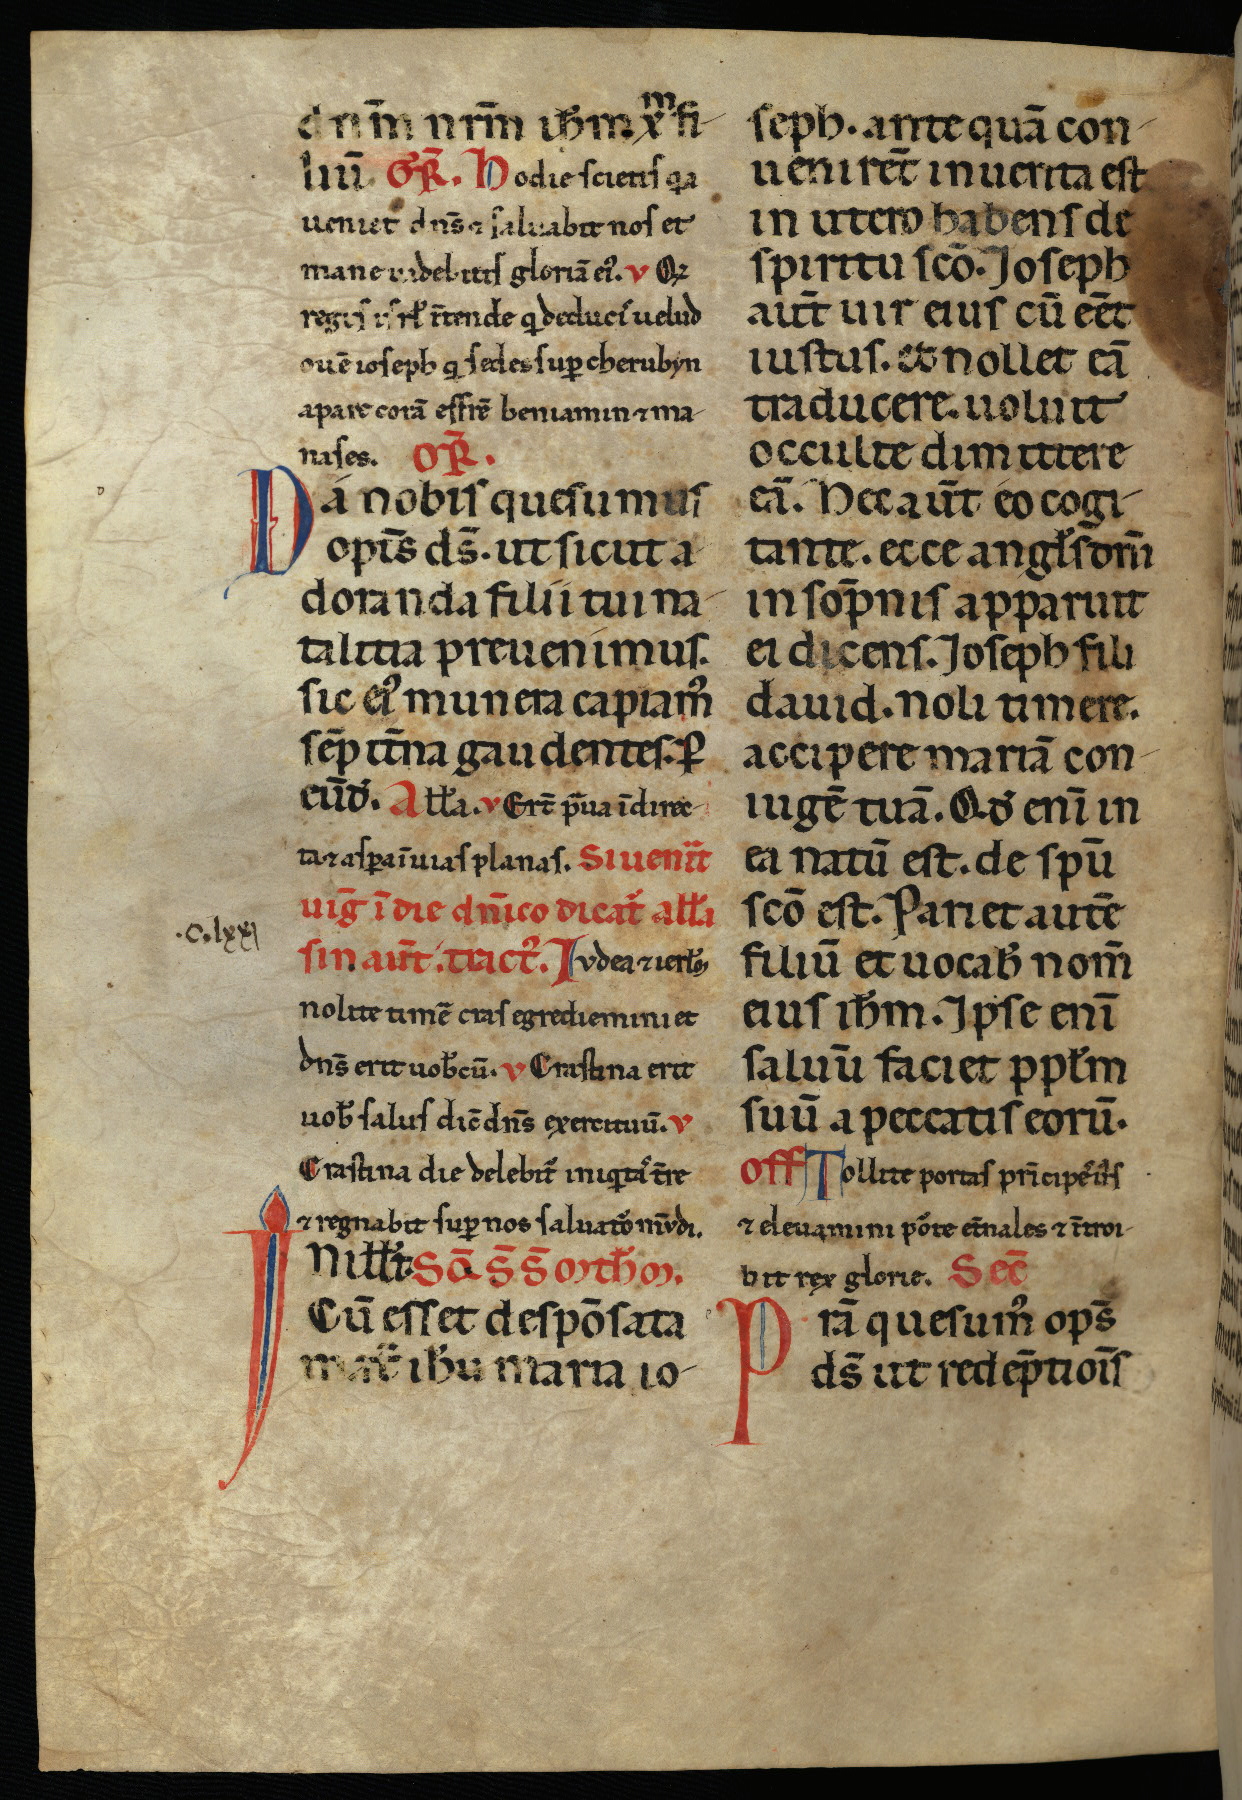 dñm nrm̄ ihm̄ xm fi-
liū. GR̄. Hodie scietis q̄a
ueniet dn̄s ⁊ saluabit nos et
mane uidebitis gloriā ei᷒. v Q¹
regis isrł ītende q̇ deduci᷒ uelud
ouē ioseph q̇ sedes sup̱ cherubyn
apare corā effrē beniamin ⁊ ma-
nases. OR̄.
Da nobis quesumus
opīs ds̄. ut sicut a-
doranda filii tui na-
talitia preuenimus.
sic ei᷒ munera capiam᷒
sēp̱ īt̄na gaudentes. P̱
eūd̄. Alła. v Er̄t p̄ua ī direc-
ta ⁊ asp̱a ī uias planas. Si uen̄it
uiḡ ī die dn̄ico dicat᷒ alła
sin aūt. tract᷒. Iudea ⁊ ierłm
nolite timē cras egrediemini et
dn̄s erit uob̄cū. v Crastina erit
uob̄ salus dic̄ dn̄s exercituū. v
Crastina die delebit᷒ iniq̇ta᷒ t̄re
⁊ regnabit sup̱ nos saluato᷒ mūdi.
In iłło t̄. Scā. S̄. S̄. Math̄m.
Cū esset despōsata
mat᷒ ihū maria io-
.c.lxxi
seph. ante quā con-
uenirēt inuenta est
in utero habens de
spiritu scō. Ioseph
aūt uir eius cū eēt
iustus. et nollet eā
traducere. uoluit
occulte dimittere
eā. Hec aūt eo cogi-
tante. ecce angłs dn̄i
in sop̄nis apparuit
ei dicens. Ioseph fili
dauid. noli timere.
accipere mariā con-
iugē tuā. Qd̄ enī in
ea natū est. de spū
scō est. Pariet autē
filiū et uocab̄ nom̄
eius ihm̄. Ipse enī
saluū faciet ppłm
suū a peccatis eorū.
Off Tollite portas prīcipes ur̄s
⁊ eleuamini po᷒te et̄nales ⁊ ītroi-
bit rex glorie. Sec̄
Prā quesum᷒ opīs
ds̄ ut redēptiōis